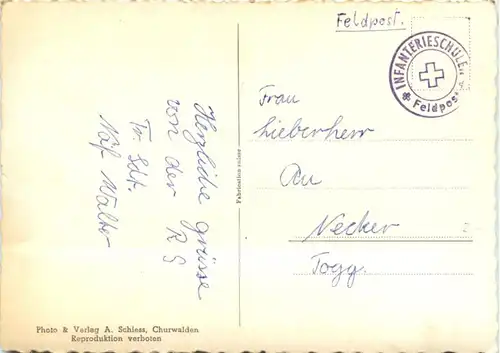 Feldpost.
INFANTERIESCHULEN
Feldpost
Herzliche grüsse
von der R S
Tr. Sdt.
Näf Walter
Fabrication suisse
Frau
Lieberherr
Au
Necker
Togg.
Photo & Verlag A. Schless, Churwalden
Reproduktion verboten